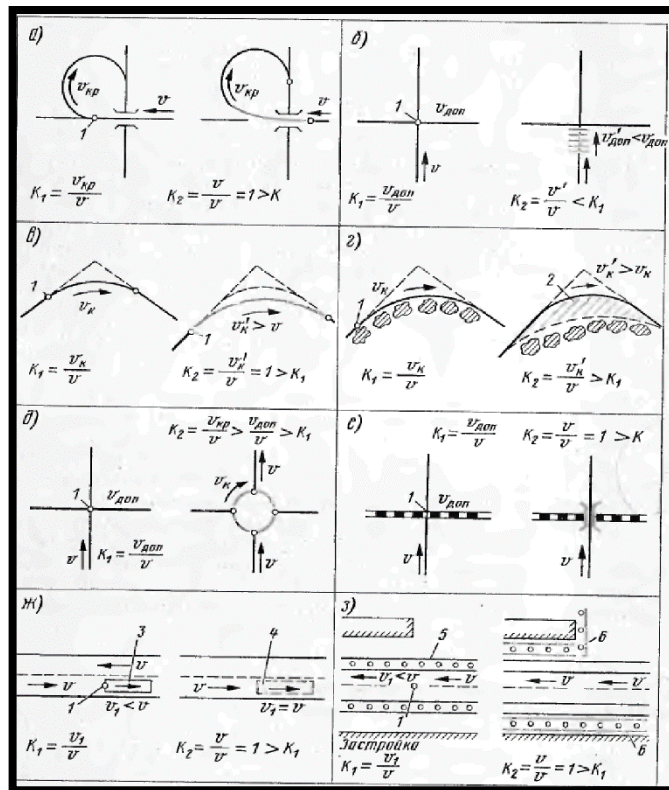 а)
vкр
v
1
K₁ = vкр/v
vкр
v
K₂ = v/v = 1 > K
б)
1
vдоп
v
K₁ = vдоп/v
v'доп < vдоп
K₂ = v'/v < K₁
в)
1
vк
K₁ = vк/v
1
v'к > v
K₂ = v'к/v = 1 > K₁
г)
1
vк
K₁ = vк/v
2
v'к > vк
K₂ = v'к/v > K₁
д)
1
vдоп
v
K₁ = vдоп/v
K₂ = vкр/v > vдоп/v > K₁
vк
v
v
е)
K₁ = vдоп/v
1
vдоп
v
K₂ = v/v = 1 > K
v
ж)
3
v
v
1
v₁ < v
K₁ = v₁/v
4
v
v₁ = v
K₂ = v/v = 1 > K₁
з)
5
v₁ < v
v
1
Застройка
K₁ = v₁/v
6
v
v
6
K₂ = v/v = 1 > K₁